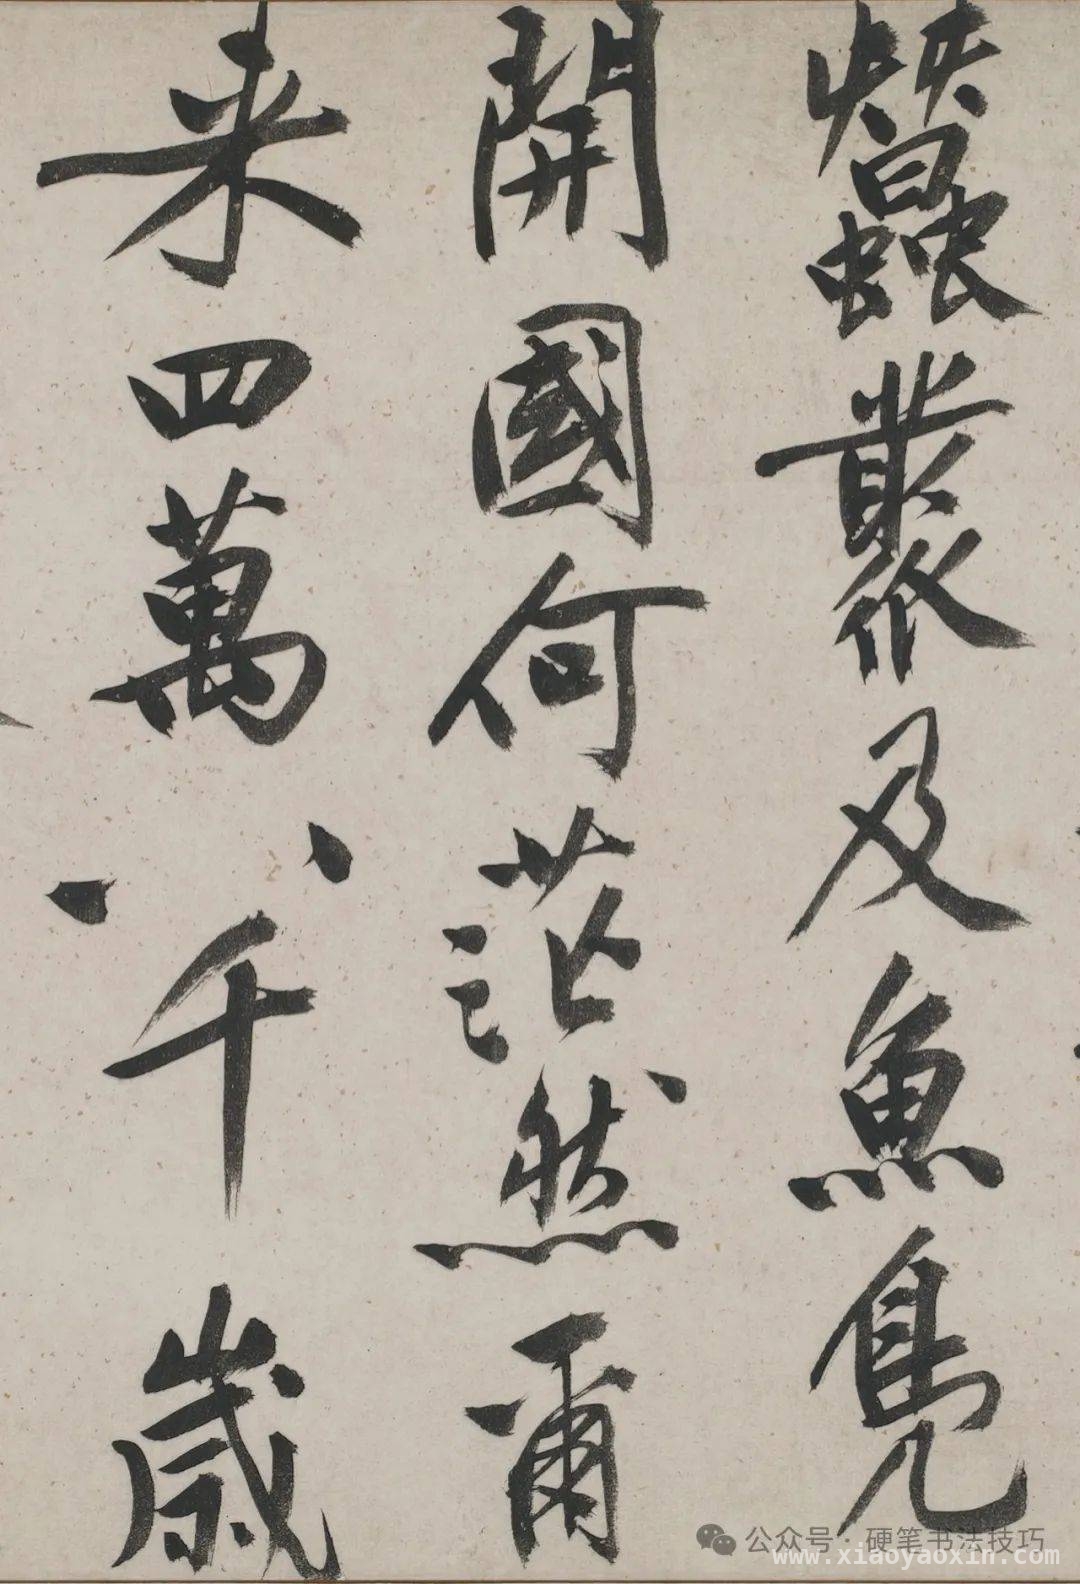 蠶叢及魚鳧
開國何茫然爾
来四萬八千歲
公众号·硬笔书法技巧
www.xiaoyaoxin.com